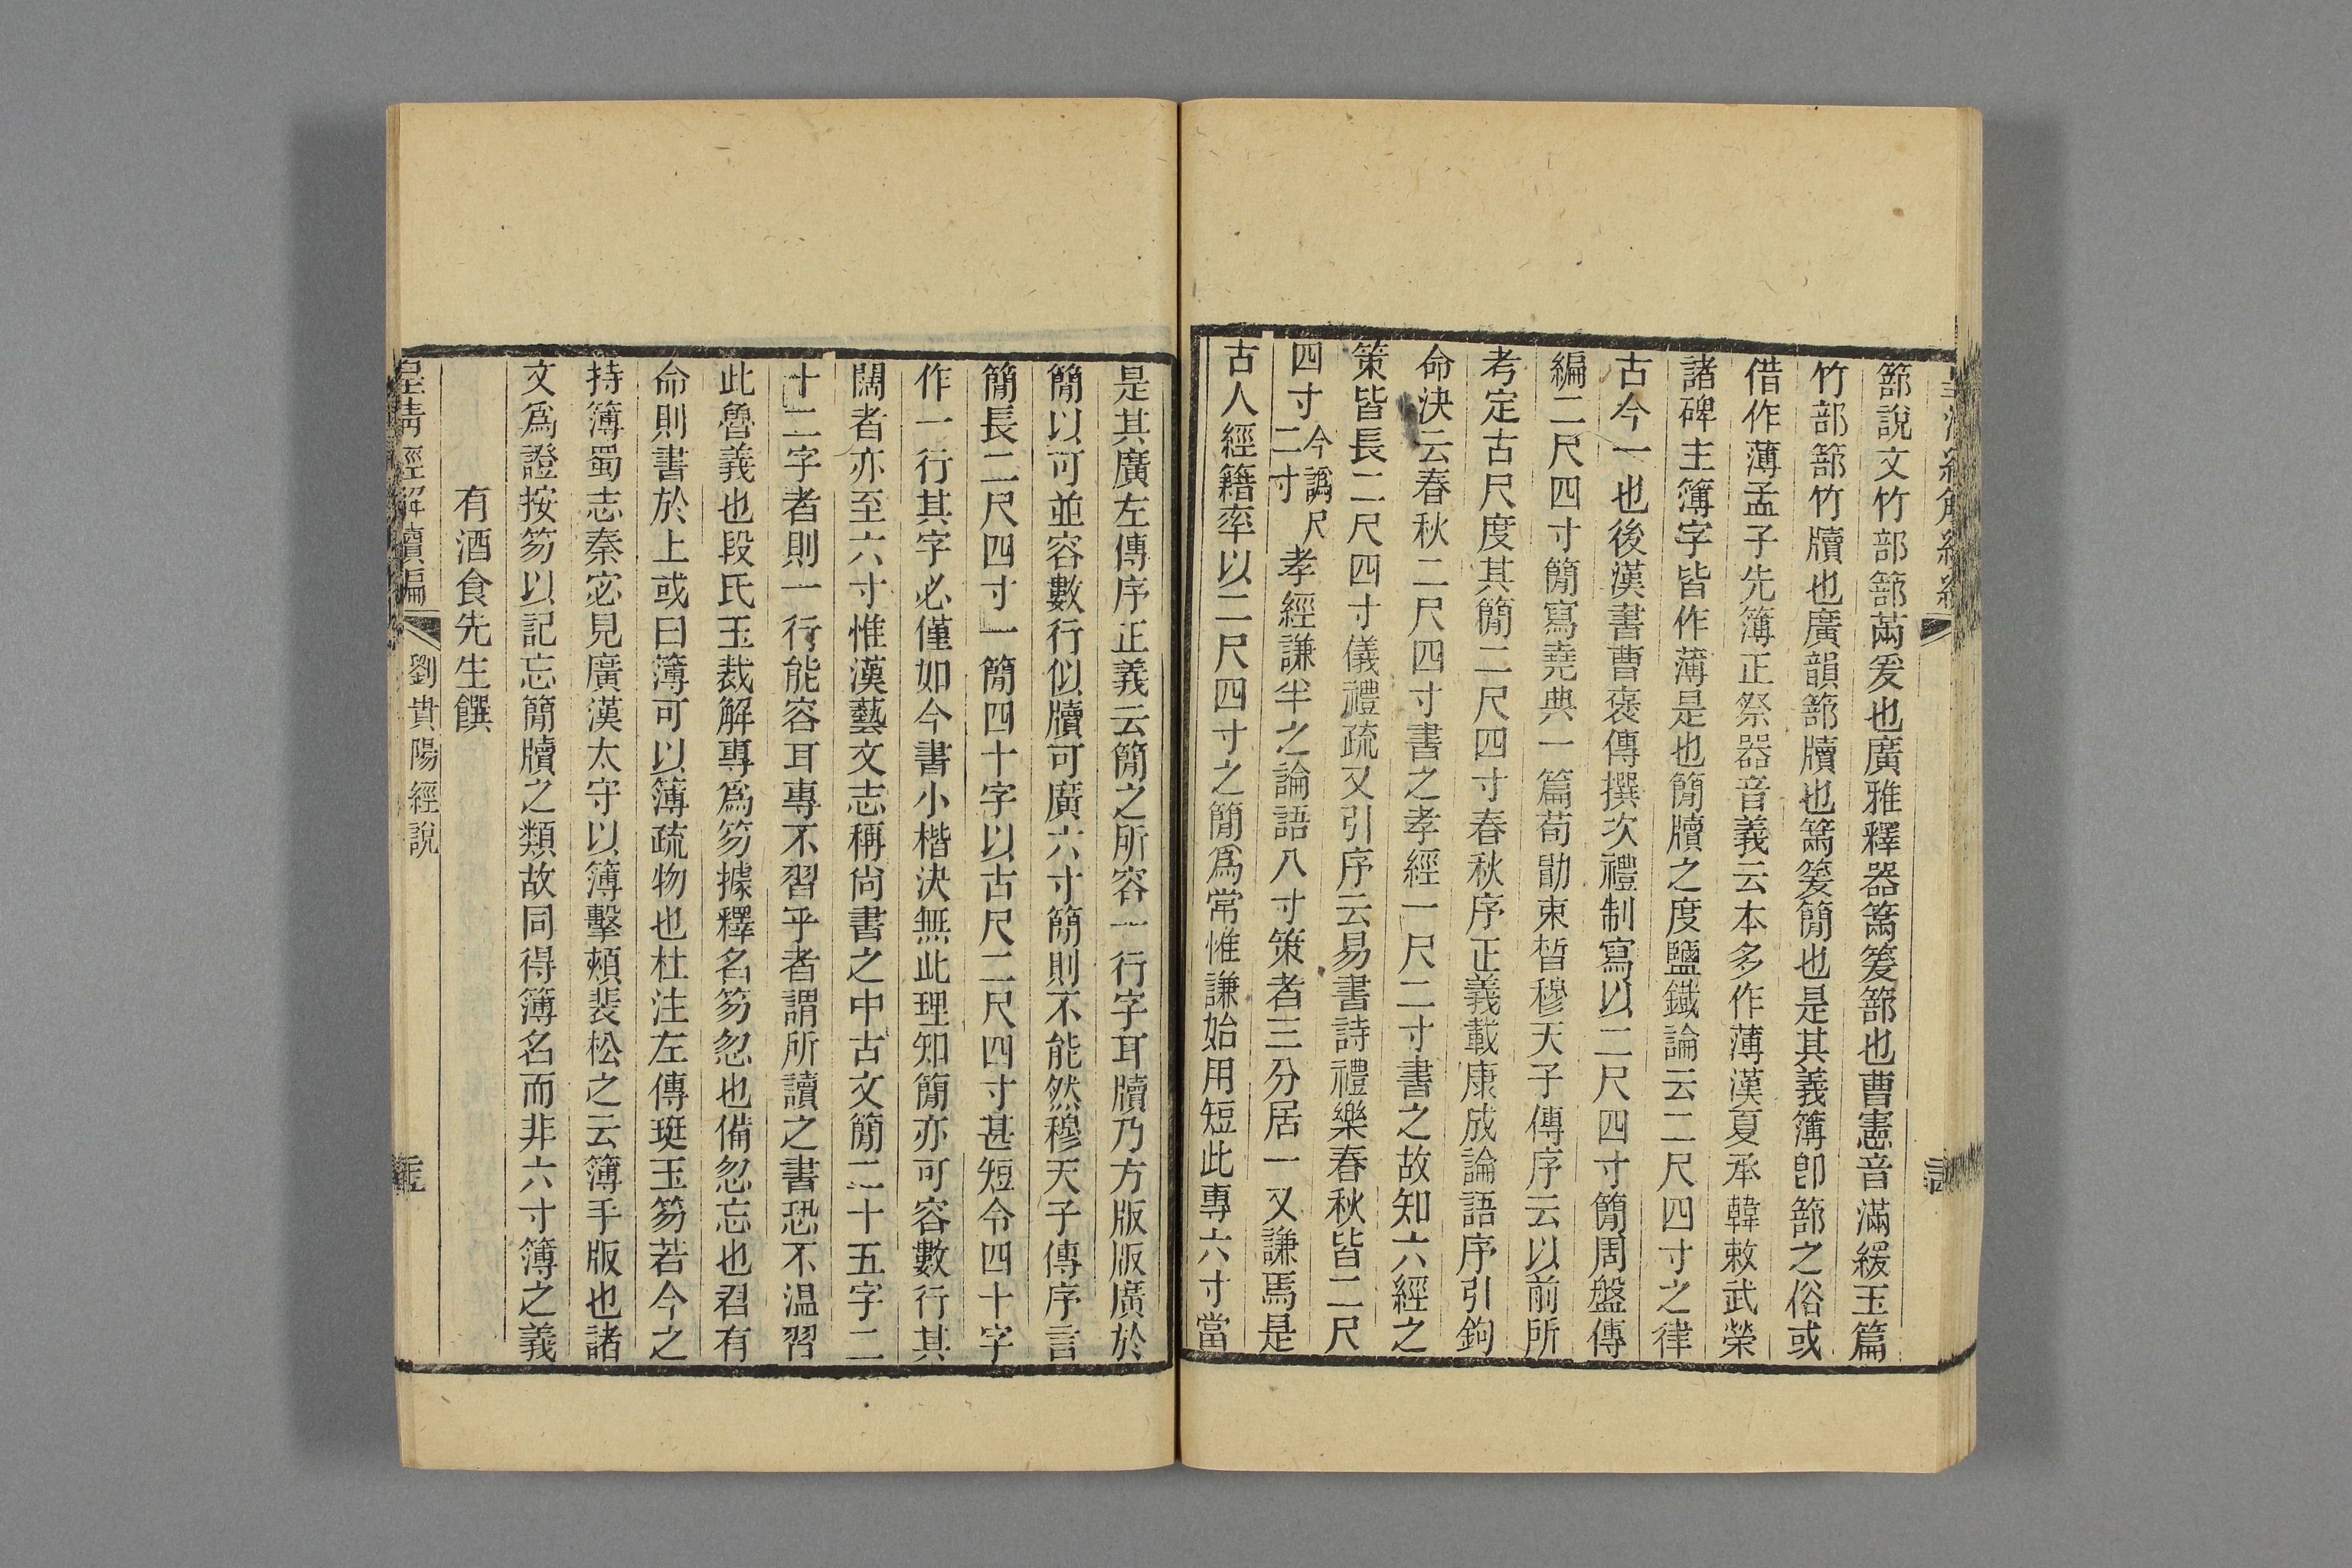 篰說文竹部篰䈏爰也廣雅釋器篰也曹憲音滿緩玉篇
竹部篰竹牘也廣韻篰牘也簡也是其義簿卽篰之俗或
借作薄孟子先簿正祭器音義云本多作薄漢夏承韓敕武榮
諸碑主簿字皆作薄是也簡牘之度鹽鐵論云二尺四寸之律
古今一也後漢書曹褒傳撰次禮制寫以二尺四寸簡周盤傳
編二尺四寸簡寫堯典一篇荀勖束晳穆天子傳序云以前所
考定古尺度其簡二尺四寸春秋序正義載康成論語序引鉤
命決云春秋二尺四寸書之孝經一尺二寸書之故知六經之
策皆長二尺四寸儀禮疏又引序云易書詩禮樂春秋皆二尺
四寸今譌尺二寸孝經謙半之論語八寸策者三分居一又謙焉是
古人經籍率以二尺四寸之簡爲常惟謙始用短此專六寸當
是其廣左傳序正義云簡之所容一行字耳牘乃方版版廣於
簡以可並容數行似牘可廣六寸簡則不能然穆天子傳序言
簡長二尺四寸一簡四十字以古尺二尺四寸甚短令四十字
作一行其字必僅如今書小楷決無此理知簡亦可容數行其
闊者亦至六寸惟漢藝文志稱尙書之中古文簡二十五字二
十二字者則一行能容耳專不習乎者謂所讀之書恐不温習
此魯義也段氏玉裁解專爲笏據釋名笏忽也備忽忘也君有
命則書於上或曰簿可以簿疏物也杜注左傳珽玉笏若今之
持簿蜀志秦宓見廣漢太守以簿擊頰裴松之云簿手版也諸
文爲證按笏以記忘簡牘之類故同得簿名而非六寸簿之義
有酒食先生饌
皇淸經解續編
劉貴陽經說